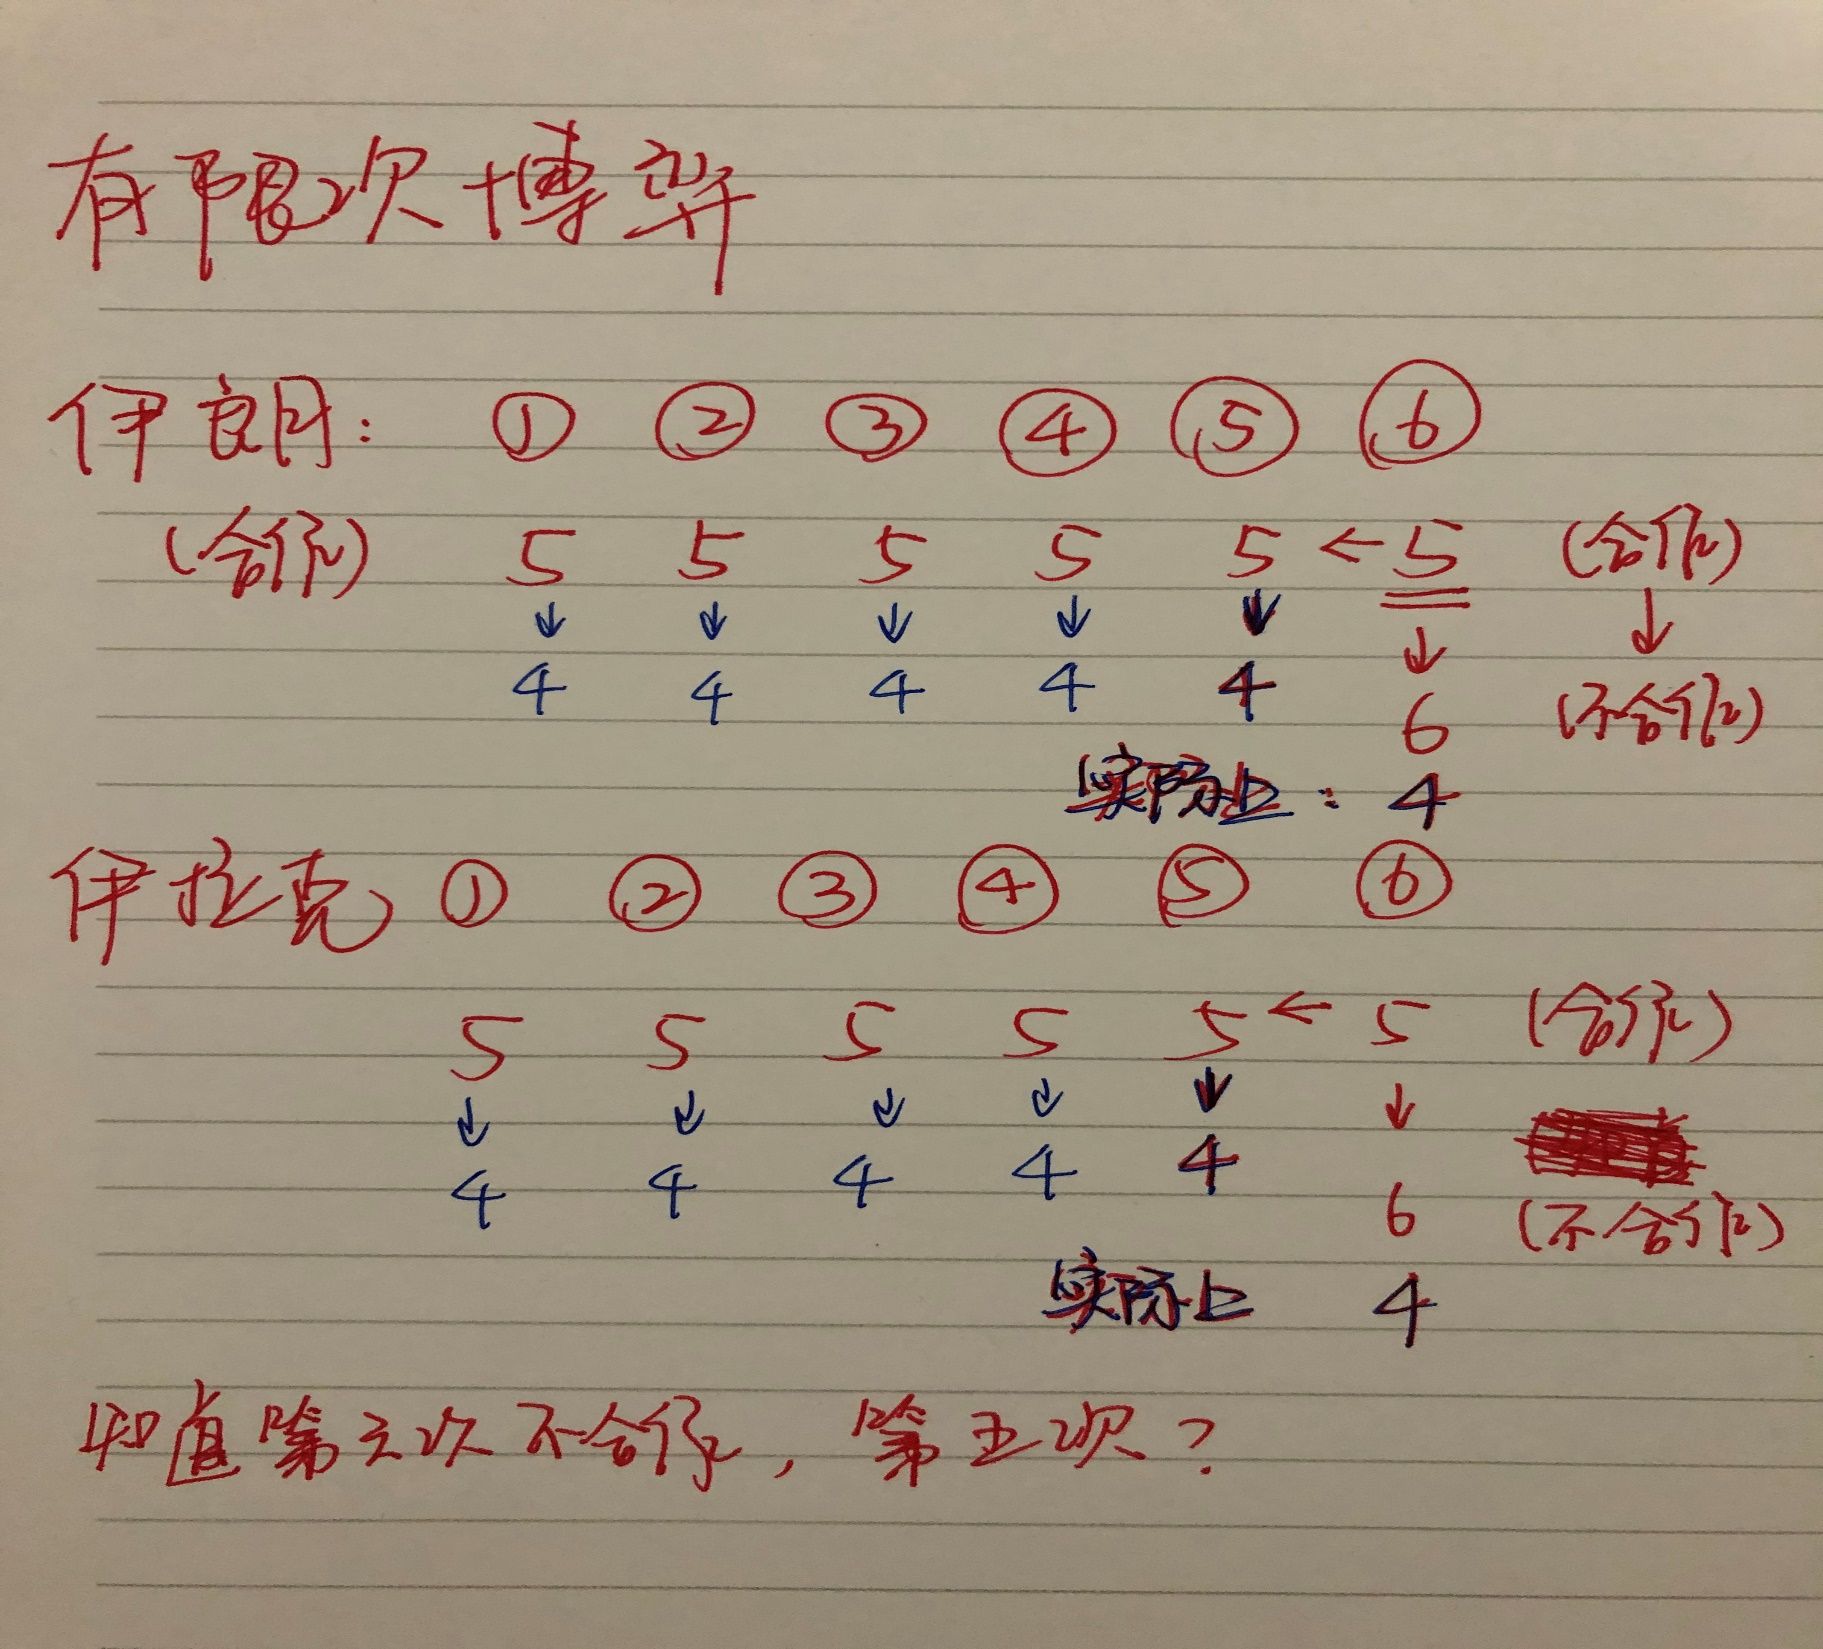 有限次博弈
伊朗: ① ② ③ ④ ⑤ ⑥
(合作) 5 5 5 5 5 ← 5 (合作)
↓ ↓ ↓ ↓ ↓ ↓ ↓
4 4 4 4 4 6 (不合作)
实际上: 4
伊拉克 ① ② ③ ④ ⑤ ⑥
5 5 5 5 5 ← 5 (合作)
↓ ↓ ↓ ↓ ↓ ↓
4 4 4 4 4 6 (不合作)
实际上 4
知道第六次不合作, 第五次?